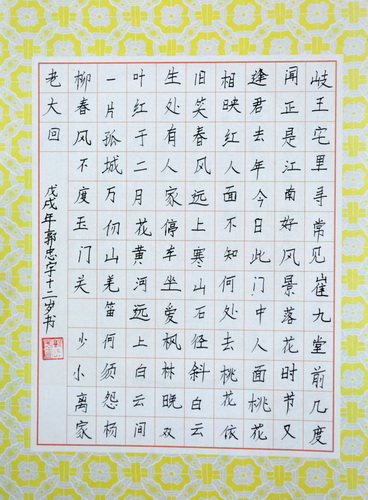 岐王宅里寻常见崔九堂前几度
闻正是江南好风景落花时节又
逢君去年今日此门中人面桃花
相映红人面不知何处去桃花依
旧笑春风远上寒山石径斜白云
生处有人家停车坐爱枫林晚双
叶红于二月花黄河远上白云间
一片孤城万仞山羌笛何须怨杨
柳春风不度玉门关 少小离家
老大回
戊戌年郭忠宇十二岁书